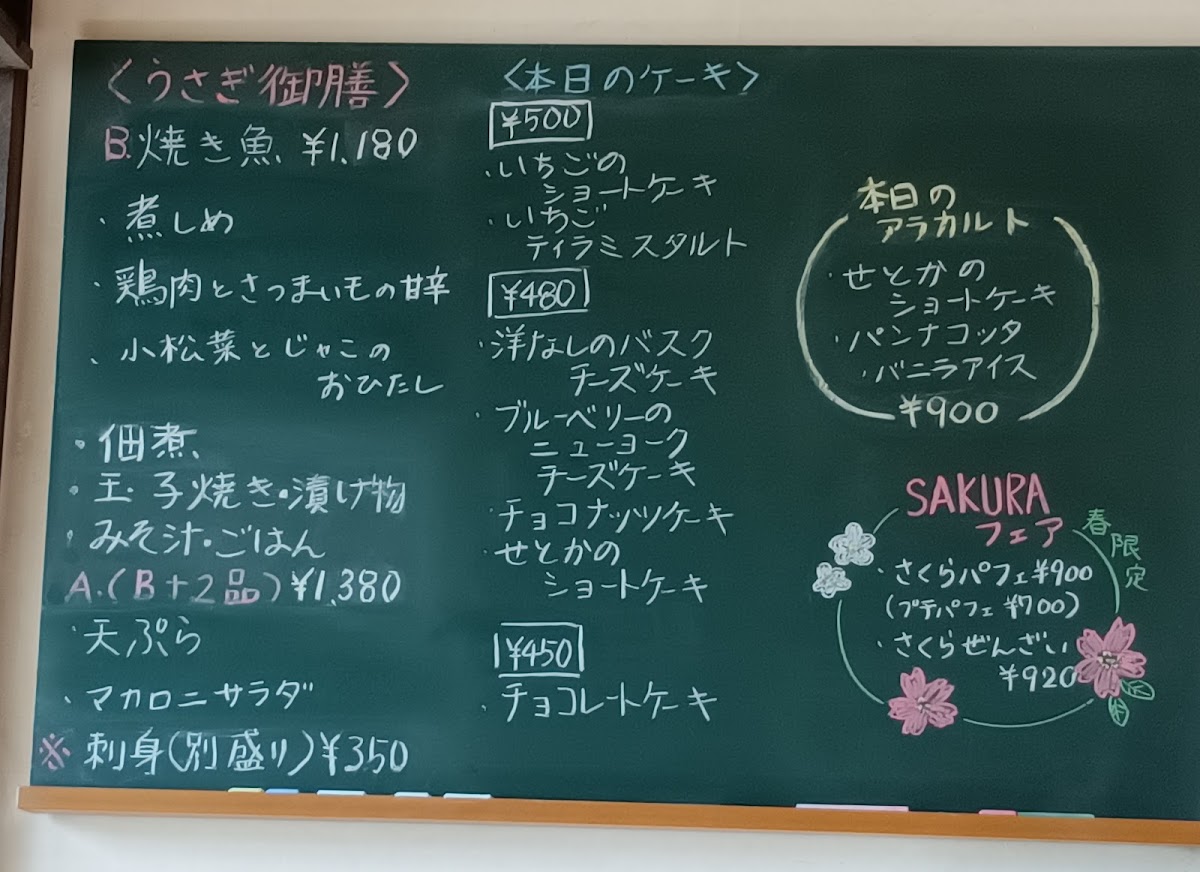 〈うさぎ御膳〉
B.焼き魚 ¥1,180
・煮しめ
・鶏肉とさつまいもの甘辛
・小松菜とじゃこの
おひたし
・佃煮
・玉子焼き・漬け物
・みそ汁・ごはん
A.(B+2品)¥1,380
・天ぷら
・マカロニサラダ
※刺身(別盛り)¥350
〈本日のケーキ〉
¥500
・いちごの
ショートケーキ
・いちご
ティラミスタルト
¥480
・洋なしのバスク
チーズケーキ
・ブルーベリーの
ニューヨーク
チーズケーキ
・チョコナッツケーキ
・せとかの
ショートケーキ
¥450
・チョコレートケーキ
本日の
アラカルト
・せとかの
ショートケーキ
・パンナコッタ
・バニラアイス
¥900
SAKURA
フェア
春限定
・さくらパフェ¥900
(プチパフェ ¥700)
・さくらぜんざい
¥920